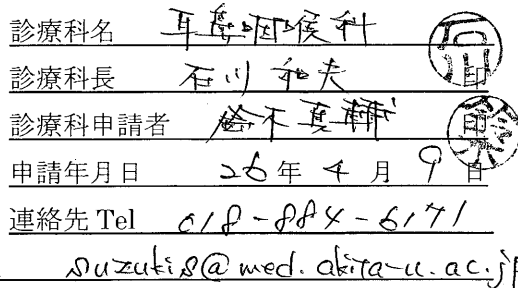 診療科名 耳鼻咽喉科
診療科長 石川和夫 印
診療科申請者 鈴木真輔 印
申請年月日 26年4月9日
連絡先 Tel 018-884-6171
suzukis@med.akita-u.ac.jp